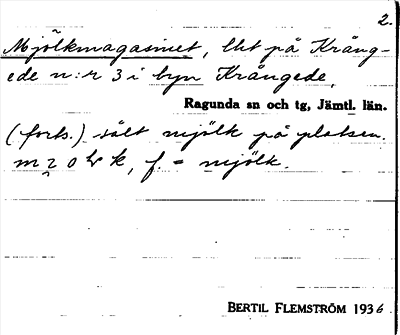 2.
Mjölkmagasinet, lht på Krång-
ede n:r 3 i byn Krångede,
Ragunda sn och tg, Jämtl. län.
(forts.) sålt mjölk på platsen.
f. = mjölk.
BERTIL FLEMSTRÖM 1936.